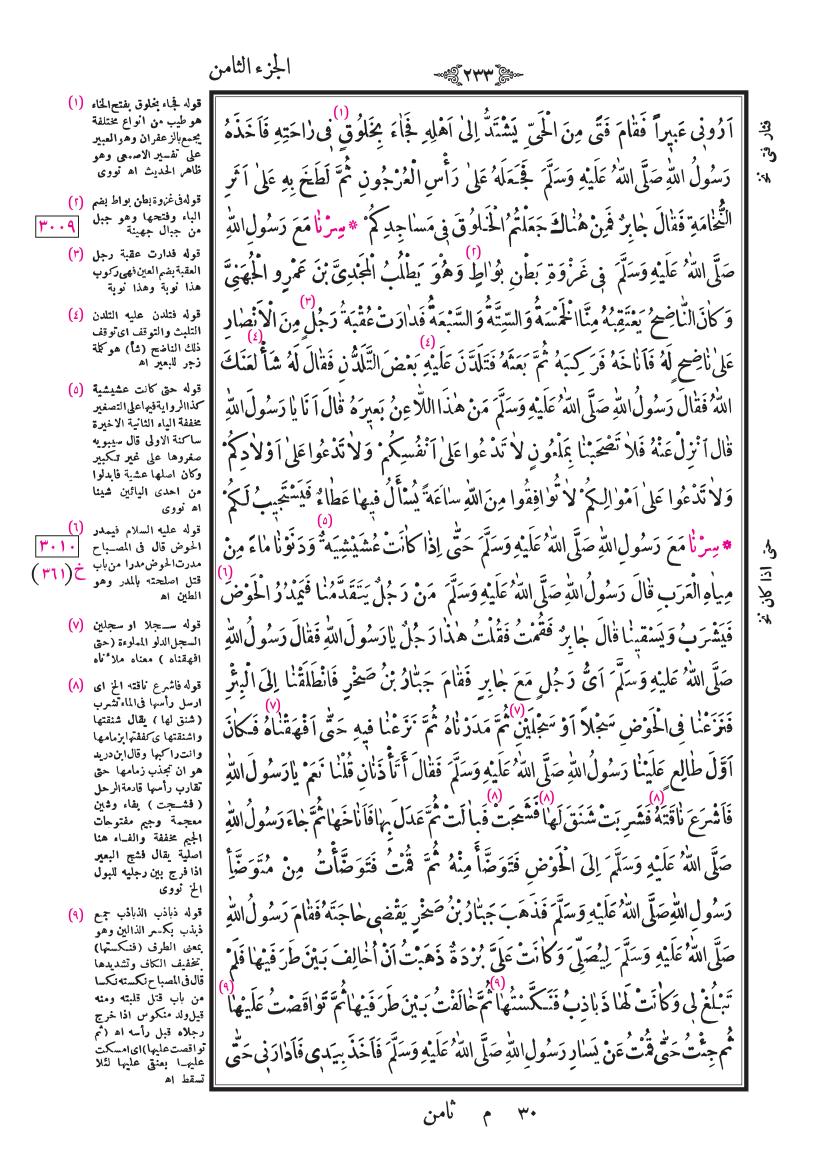 الجزء الثامن
٢٣٣
اَرُونِى عَبِيراً فَقَامَ فَتًى مِنَ الْحَىِّ يَشْتَدُّ اِلىٰ اَهْلِهِ فَجَاءَ بِخَلُوقٍ (١) فِى رَاحَتِهِ فَاَخَذَهُ
رَسُولُ اللهِ صَلَّى اللهُ عَلَيْهِ وَسَلَّمَ فَجَعَلَهُ عَلىٰ رَأْسِ الْعُرْجُونِ ثُمَّ لَطَخَ بِهِ عَلىٰ اَثَرِ
النُّخَامَةِ فَقَالَ جَابِرٌ فَمِنْ هُنَاكَ جَعَلْتُمُ الْخَلُوقَ فِى مَسَاجِدِكُمْ * سِرْنَا مَعَ رَسُولِ اللهِ
صَلَّى اللهُ عَلَيْهِ وَسَلَّمَ فِى غَزْوَةِ بَطْنِ بُوَاطٍ (٢) وَهُوَ يَطْلُبُ الْمَجْدِىَّ بْنَ عَمْرٍو الْجُهَنِىَّ
وَكَانَ النَّاضِحُ يَعْتَقِبُهُ مِنَّا الْخَمْسَةُ وَالسِّتَّةُ وَالسَّبْعَةُ فَدَارَتْ عُقْبَةُ (٣) رَجُلٍ مِنَ الْاَنْصَارِ
عَلىٰ نَاضِحٍ لَهُ فَاَنَاخَهُ فَرَكِبَهُ ثُمَّ بَعَثَهُ فَتَلَدَّنَ عَلَيْهِ (٤) بَعْضَ التَّلَدُّنِ فَقَالَ لَهُ شَأْ (٤) لَعَنَكَ
اللهُ فَقَالَ رَسُولُ اللهِ صَلَّى اللهُ عَلَيْهِ وَسَلَّمَ مَنْ هٰذَا اللَّاعِنُ بَعِيرَهُ قَالَ اَنَا يَا رَسُولَ اللهِ
قَالَ اَنْزِلْ عَنْهُ فَلَا تَصْحَبْنَا بِمَلْعُونٍ لَا تَدْعُوا عَلىٰ اَنْفُسِكُمْ وَلَا تَدْعُوا عَلىٰ اَوْلَادِكُمْ
وَلَا تَدْعُوا عَلىٰ اَمْوَالِكُمْ لَا تُوَافِقُوا مِنَ اللهِ سَاعَةً يُسْأَلُ فِيهَا عَطَاءٌ فَيَسْتَجِيبُ لَكُمْ
* سِرْنَا مَعَ رَسُولِ اللهِ صَلَّى اللهُ عَلَيْهِ وَسَلَّمَ حَتَّى اِذَا كَانَتْ عُشَيْشِيَةٌ (٥) وَدَنَوْنَا مَاءً مِنْ
مِيَاهِ الْعَرَبِ قَالَ رَسُولُ اللهِ صَلَّى اللهُ عَلَيْهِ وَسَلَّمَ مَنْ رَجُلٌ يَتَقَدَّمُنَا فَيَمْدُرُ الْحَوْضَ (٦)
فَيَشْرَبُ وَيَسْقِينَا قَالَ جَابِرٌ فَقُمْتُ فَقُلْتُ هٰذَا رَجُلٌ يَا رَسُولَ اللهِ فَقَالَ رَسُولُ اللهِ
صَلَّى اللهُ عَلَيْهِ وَسَلَّمَ اَىُّ رَجُلٍ مَعَ جَابِرٍ فَقَامَ جَبَّارُ بْنُ صَخْرٍ فَانْطَلَقْنَا اِلَى الْبِئْرِ
فَنَزَعْنَا فِى الْحَوْضِ سَجْلاً اَوْ سَجْلَيْنِ (٧) ثُمَّ مَدَرْنَاهُ ثُمَّ نَزَعْنَا فِيهِ حَتَّى اَفْهَقْنَاهُ (٧) فَكَانَ
اَوَّلَ طَالِعٍ عَلَيْنَا رَسُولُ اللهِ صَلَّى اللهُ عَلَيْهِ وَسَلَّمَ فَقَالَ أَتَأْذَنَانِ قُلْنَا نَعَمْ يَا رَسُولَ اللهِ
فَاَشْرَعَ نَاقَتَهُ (٨) فَشَرِبَتْ شَنَقَ لَهَا (٨) فَشَجَتْ (٨) فَبَالَتْ ثُمَّ عَدَلَ بِهَا فَاَنَاخَهَا ثُمَّ جَاءَ رَسُولُ اللهِ
صَلَّى اللهُ عَلَيْهِ وَسَلَّمَ اِلَى الْحَوْضِ فَتَوَضَّأَ مِنْهُ ثُمَّ قُمْتُ فَتَوَضَّأْتُ مِنْ مُتَوَضَّأِ
رَسُولِ اللهِ صَلَّى اللهُ عَلَيْهِ وَسَلَّمَ فَذَهَبَ جَبَّارُ بْنُ صَخْرٍ يَقْضِى حَاجَتَهُ فَقَامَ رَسُولُ اللهِ
صَلَّى اللهُ عَلَيْهِ وَسَلَّمَ لِيُصَلِّىَ وَكَانَتْ عَلَىَّ بُرْدَةٌ ذَهَبْتُ اَنْ اُخَالِفَ بَيْنَ طَرَفَيْهَا فَلَمْ
تَبْلُغْ لِى وَكَانَتْ لَهَا ذَبَاذِبُ (٩) فَنَكَّسْتُهَا ثُمَّ خَالَفْتُ بَيْنَ طَرَفَيْهَا ثُمَّ تَوَاقَصْتُ عَلَيْهَا (٩)
ثُمَّ جِئْتُ حَتَّى قُمْتُ عَنْ يَسَارِ رَسُولِ اللهِ صَلَّى اللهُ عَلَيْهِ وَسَلَّمَ فَاَخَذَ بِيَدِى فَاَدَارَنِى حَتَّى
فثار فتى نخ
حتى اذا كان نخ
(١) قوله فجاء بخلوق بفتح الخاء
هو طيب من انواع مختلفة
يجمع بالزعفران وهو العبير
على تفسير الاصمعى وهو
ظاهر الحديث اه نووى
(٢) قوله فى غزوة بطن بواط بضم
الباء وفتحها وهو جبل
من جبال جهينة
٣٠٠٩
(٣) قوله فدارت عقبة رجل
العقبة بضم العين فهى ركوب
هذا نوبة وهذا نوبة
(٤) قوله فتلدن عليه التلدن
التلبث والتوقف اى توقف
ذلك الناضح (شأ) هو كلمة
زجر للبعير اه
(٥) قوله حتى كانت عشيشية
كذا الرواية فيها على التصغير
مخففة الياء الثانية الاخيرة
ساكنة الاولى قال سيبويه
صغروها على غير تكبير
وكان اصلها عشية فابدلوا
من احدى اليائين شينا
اه نووى
(٦) قوله عليه السلام فيمدر
الحوض قال فى المصباح
مدرت الحوض مدرا من باب
قتل اصلحته بالمدر وهو
الطين اه
٣٠١٠
خ (٣٦١)
(٧) قوله سجلا او سجلين
السجل الدلو المملوءة (حتى
افهقناه) معناه ملأناه
(٨) قوله فاشرع ناقته الخ اى
ارسل رأسها فى الماء تشرب
(شنق لها) يقال شنقتها
واشنقتها اى كففتها بزمامها
وانت راكبها وقال ابن دريد
هو ان تجذب زمامها حتى
تقارب رأسها قادمة الرحل
(فشجت) بفاء وشين
معجمة وجيم مفتوحات
الجيم مخففة والفاء هنا
اصلية يقال فشج البعير
اذا فرج بين رجليه للبول
الخ نووى
(٩) قوله ذباذب الذباذب جمع
ذبذب بكسر الذالين وهو
بمعنى الطرف (فنكستها)
بتخفيف الكاف وتشديدها
قال فى المصباح نكسته نكسا
من باب قتل قلبته ومنه
قيل ولد منكوس اذا خرج
رجلاه قبل رأسه اه (ثم
تواقصت عليها) اى امسكت
عليها بعنقى عليها لئلا
تسقط اه
٣٠ م ثامن